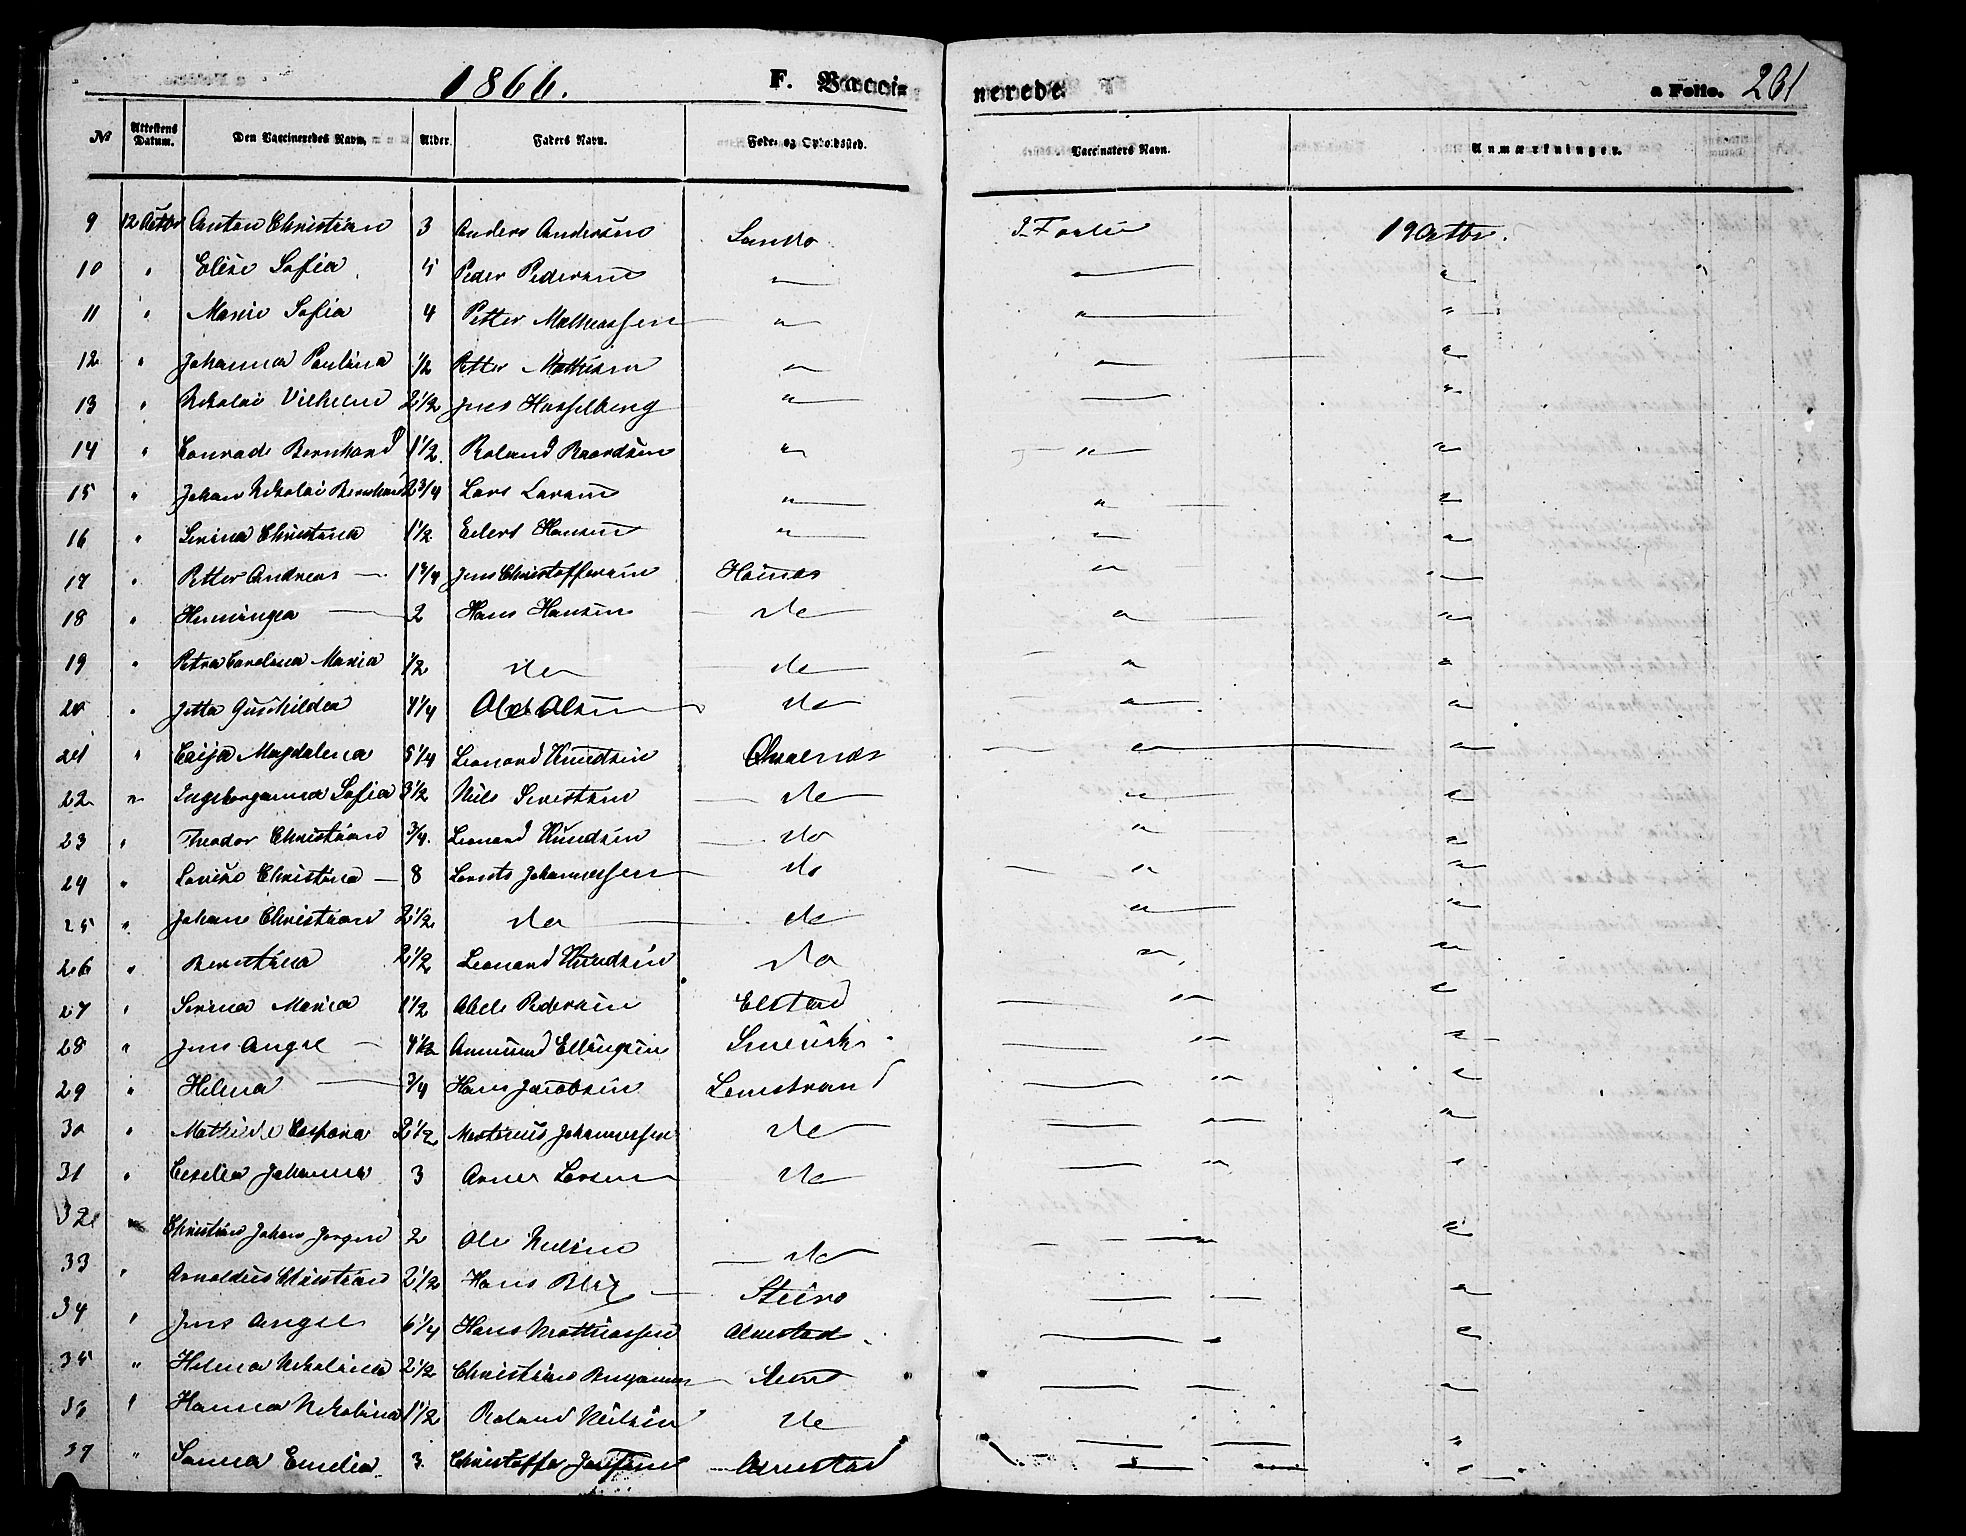 1866. F. Vacci- nerede a Folio. 261
№ Attestens Datum. Den Vaccineredes Navn. Alder. Faders Navn. Føde- og Opholdssted. Vaccinators Navn. Anmærkninger.
9 12 Octbr Anton Christian 3 Anders Andersen 19 Octbr.
10 " Elise Sofia Peder Pedersen " " "
11 " Marie Sofia 4 Petter Mathiassen " " "
12 " Johanna Paulina 1/2 Petter Mathisen " " "
13 " Nikolai Vilhelm 2 1/2 Jens Hasselberg " — "
14 " Conrade Bernhard 1 1/2 Roland Baardsen " " "
15 " Johan Nikolai Bernhard 2 3/4 Lars Larsen " " "
16 " Serina Christina 1 1/2 Eilert Hansen " " "
17 " Petter Andreas Jens Christoffersen " "
18 " Heminga 2 Hans Hansen do " "
19 " Petra Carolina Maria 1/2 do do " "
20 " Jetta Gunhilda 4 1/4 Olsen do " "
21 " Magdalena 5 1/4 Leonard Knudsen " "
22 " Ingeborganna Sofia 3 1/2 Nils do " "
23 " Theodor Christian 3/4 Leonard Knudsen do " "
24 " Lovise Christina 8 Lorents Johannessen do " "
25 " Johan Christian 2 1/2 do do " "
26 " Berntina 2 1/2 Leonard Knudsen do " "
27 " Serina Maria 1 1/2 Abel Pedersen Elstad " "
28 " Jens Angel 4 1/2 Ammund Ellingsen " "
29 " Helena 3/4 Hans Jacobsen Lemstrand " "
30 " Mathilde Caspara 2 1/2 Martinus Johannessen do " "
31 " Cecilia Johanna 3 Arnes Larsen do " "
32 " Christian Johan Jørgen 2 Ole Nielsen do " "
33 " Arnoldus Christian 2 1/2 Hans Blix Steiro "
34 " Jens Angel 6 1/4 Hans Mathiassen Almestad " "
35 " Helena Nikolina 2 1/2 Christian "
36 " Hanna Nikolina 1 1/2 Roland Nielsen do "
37 " Sanna Emelia 3 Christoffer "